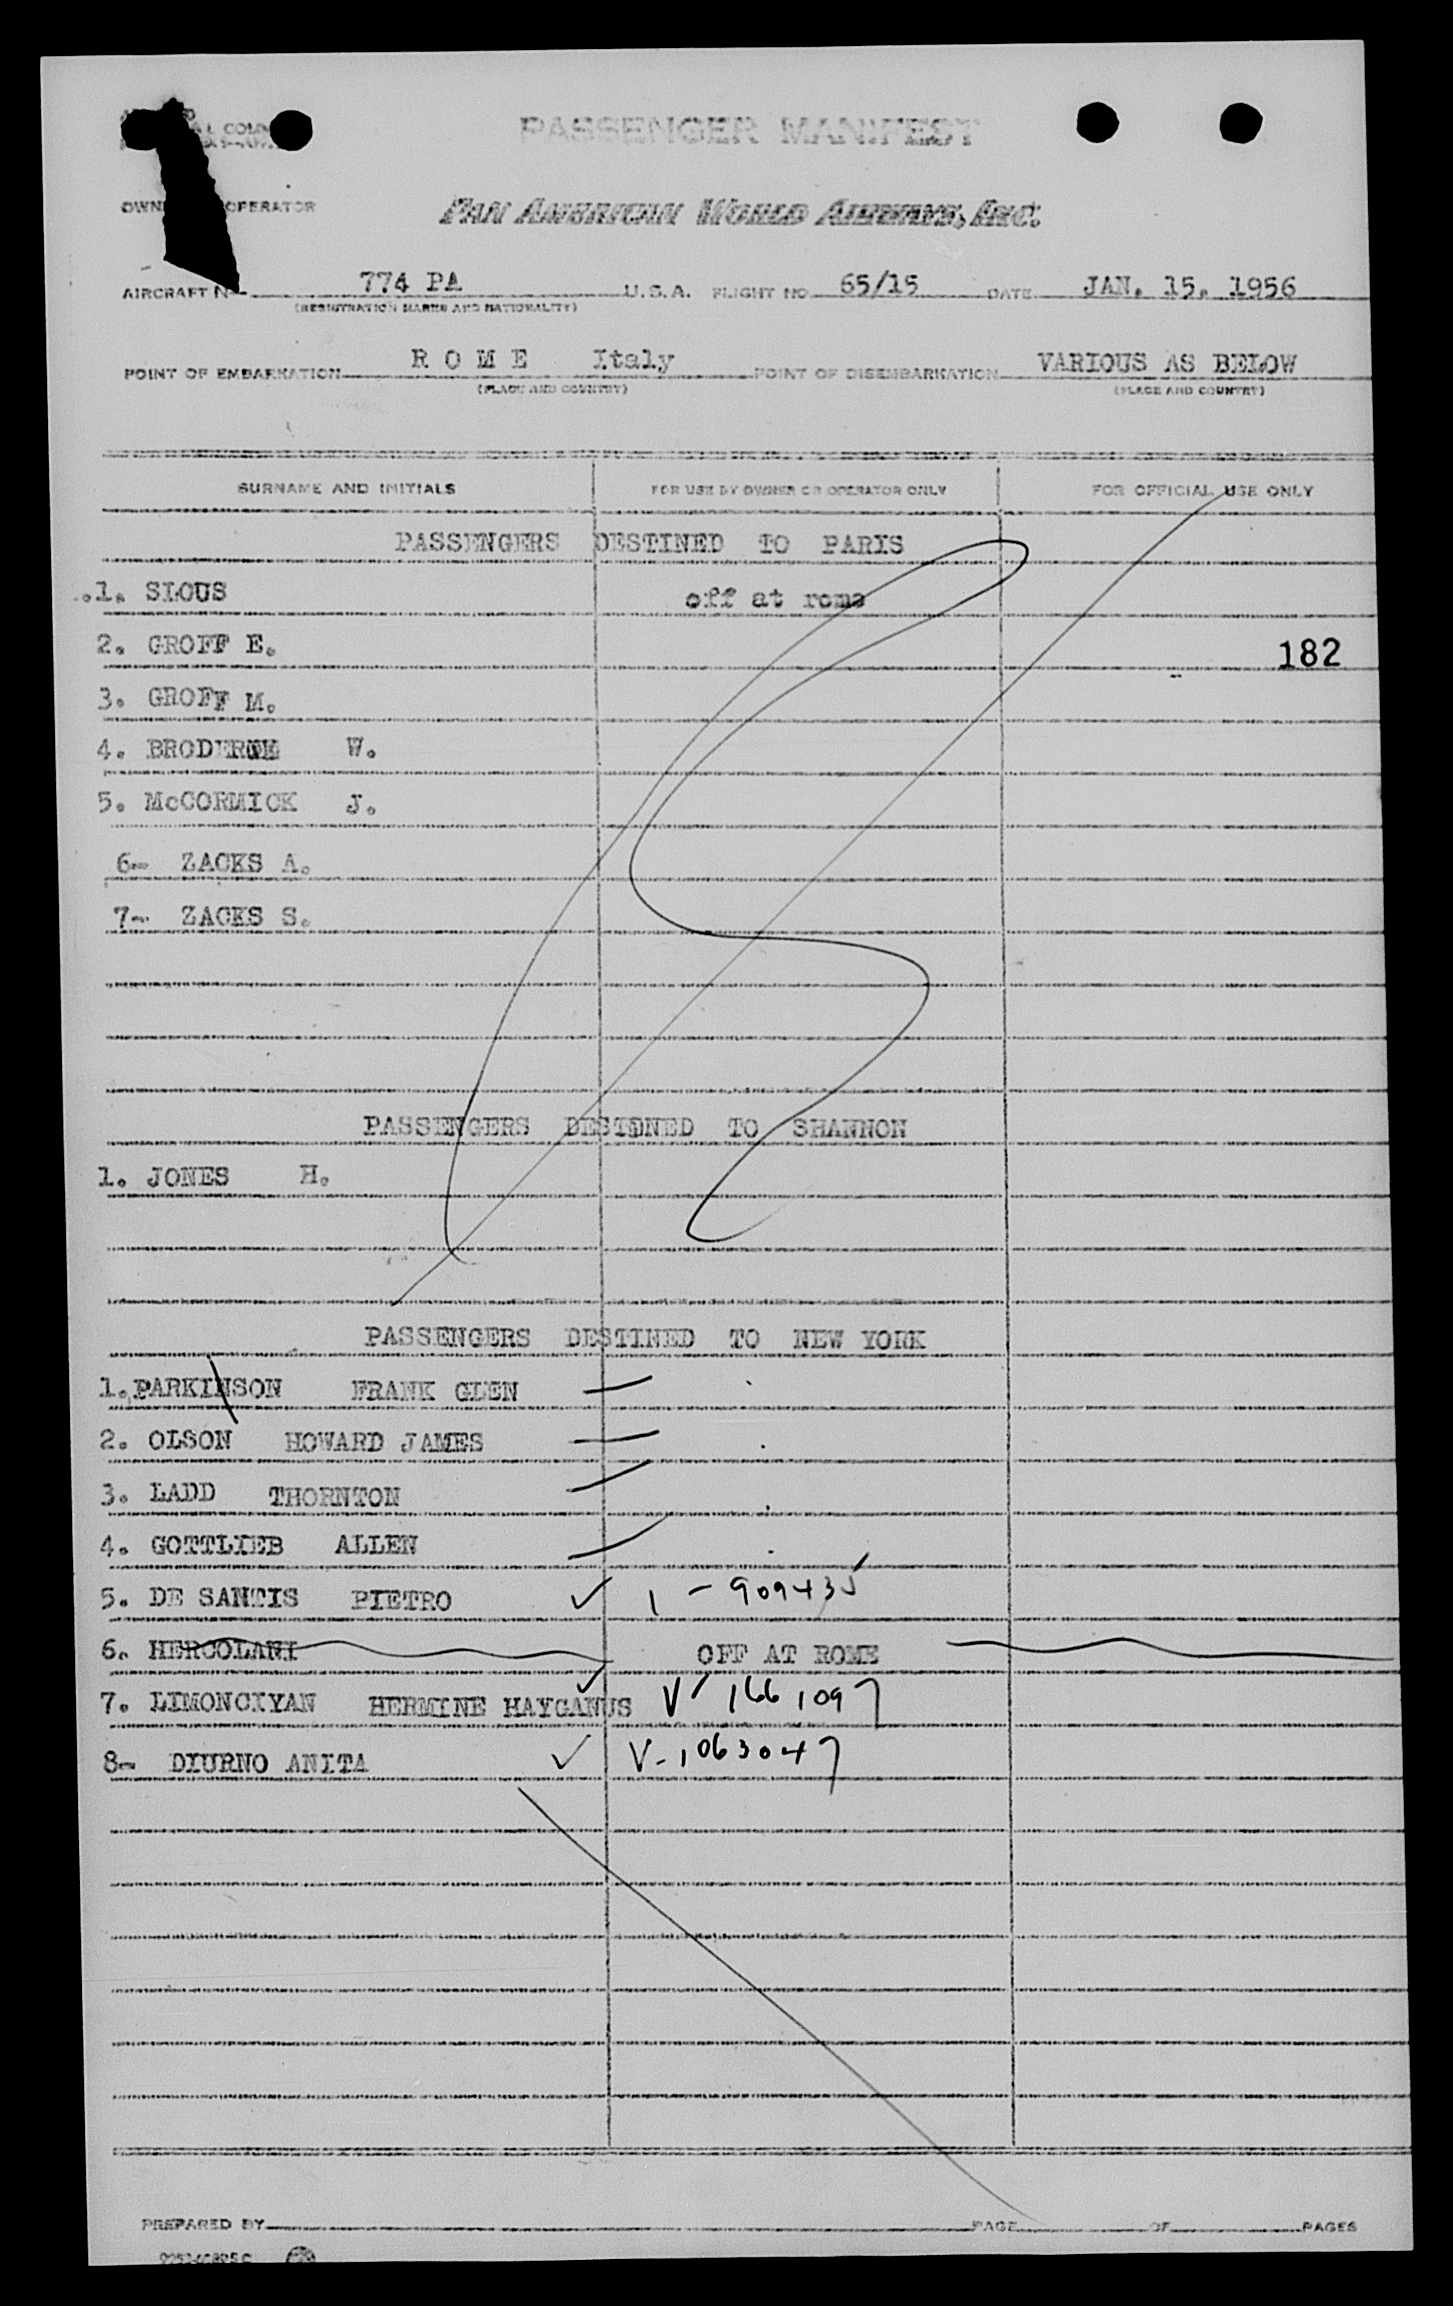 PASSENGER MANIFEST
OWNER OPERATOR
PAN AMERICAN WORLD AIRWAYS, INC.
AIRCRAFT No 774 PA U.S.A. FLIGHT NO 65/15 DATE JAN. 15. 1956
(REGISTRATION MARKS AND NATIONALITY)
POINT OF EMBARKATION R O M E Italy POINT OF DISEMBARKATION VARIOUS AS BELOW
(PLACE AND COUNTRY) (PLACE AND COUNTRY)
SURNAME AND INITIALS FOR USE BY OWNER OR OPERATOR ONLY FOR OFFICIAL USE ONLY
PASSENGERS DESTINED TO PARIS
.1. SIOUS off at rome
2. GROFF E. 182
3. GROFF M.
4. W.
5. McCORMICK J.
6- ZACKS A.
7- ZACKS S.
PASSENGERS DESTINED TO SHANNON
1. JONES H.
PASSENGERS DESTINED TO NEW YORK
1. PARKINSON FRANK GLEN
2. OLSON HOWARD JAMES
3. LADD THORNTON
4. GOTTLIEB ALLEN
5. DE SANTIS PIETRO ✓ 1 - 909435
6. HERCOLANI OFF AT ROME
7. LIMONCIYAN HERMINE HAYGANUS ✓ V-1661097
8- DIURNO ANITA ✓ V-1063047
PREPARED BY PAGE OF PAGES